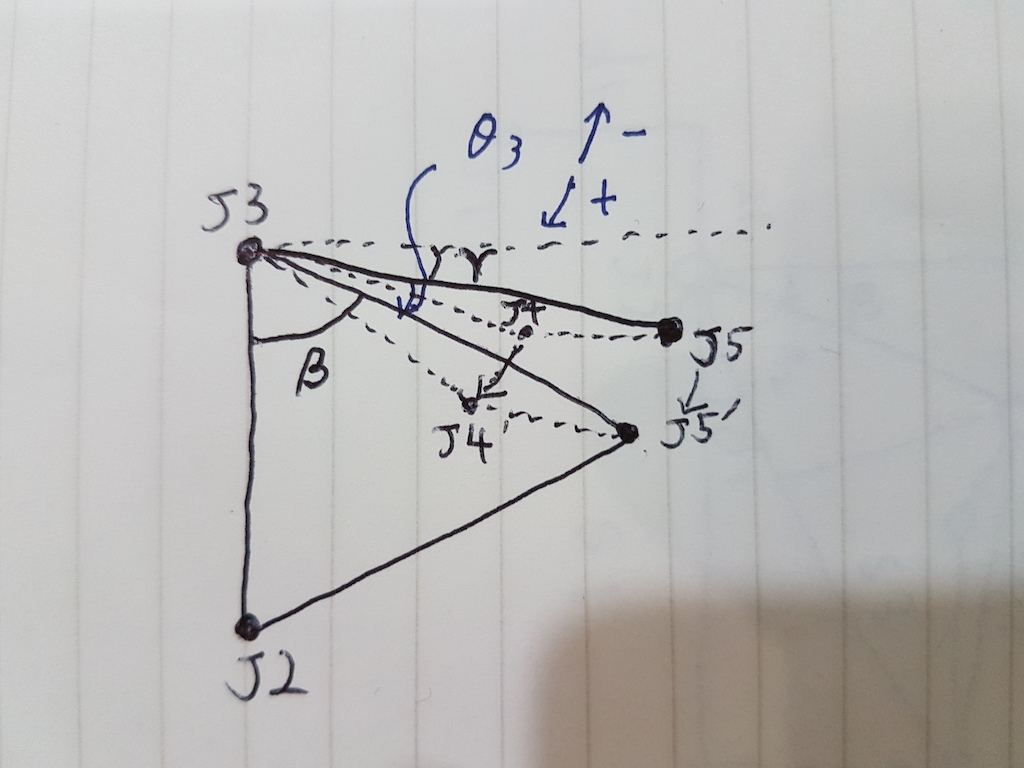 θ3
-
+
J3
γ
J4
J5
β
J5'
J4'
J2